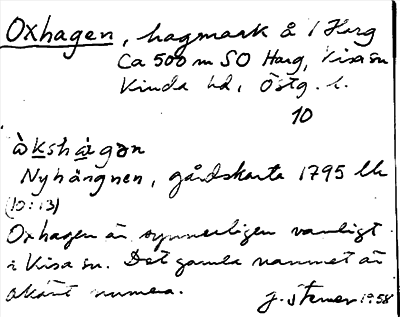 Oxhagen, hagmark å 1 Harg
Ca 500 m SO Harg, Kisa sn
Kinda hd, Östg. l.
10
Nyhängnen, gårdskarta 1795 lk
(10:13)
Oxhagen är synnerligen vanligt
i Kisa sn. Det gamla namnet är
okänt numera.
J. Stener 1958